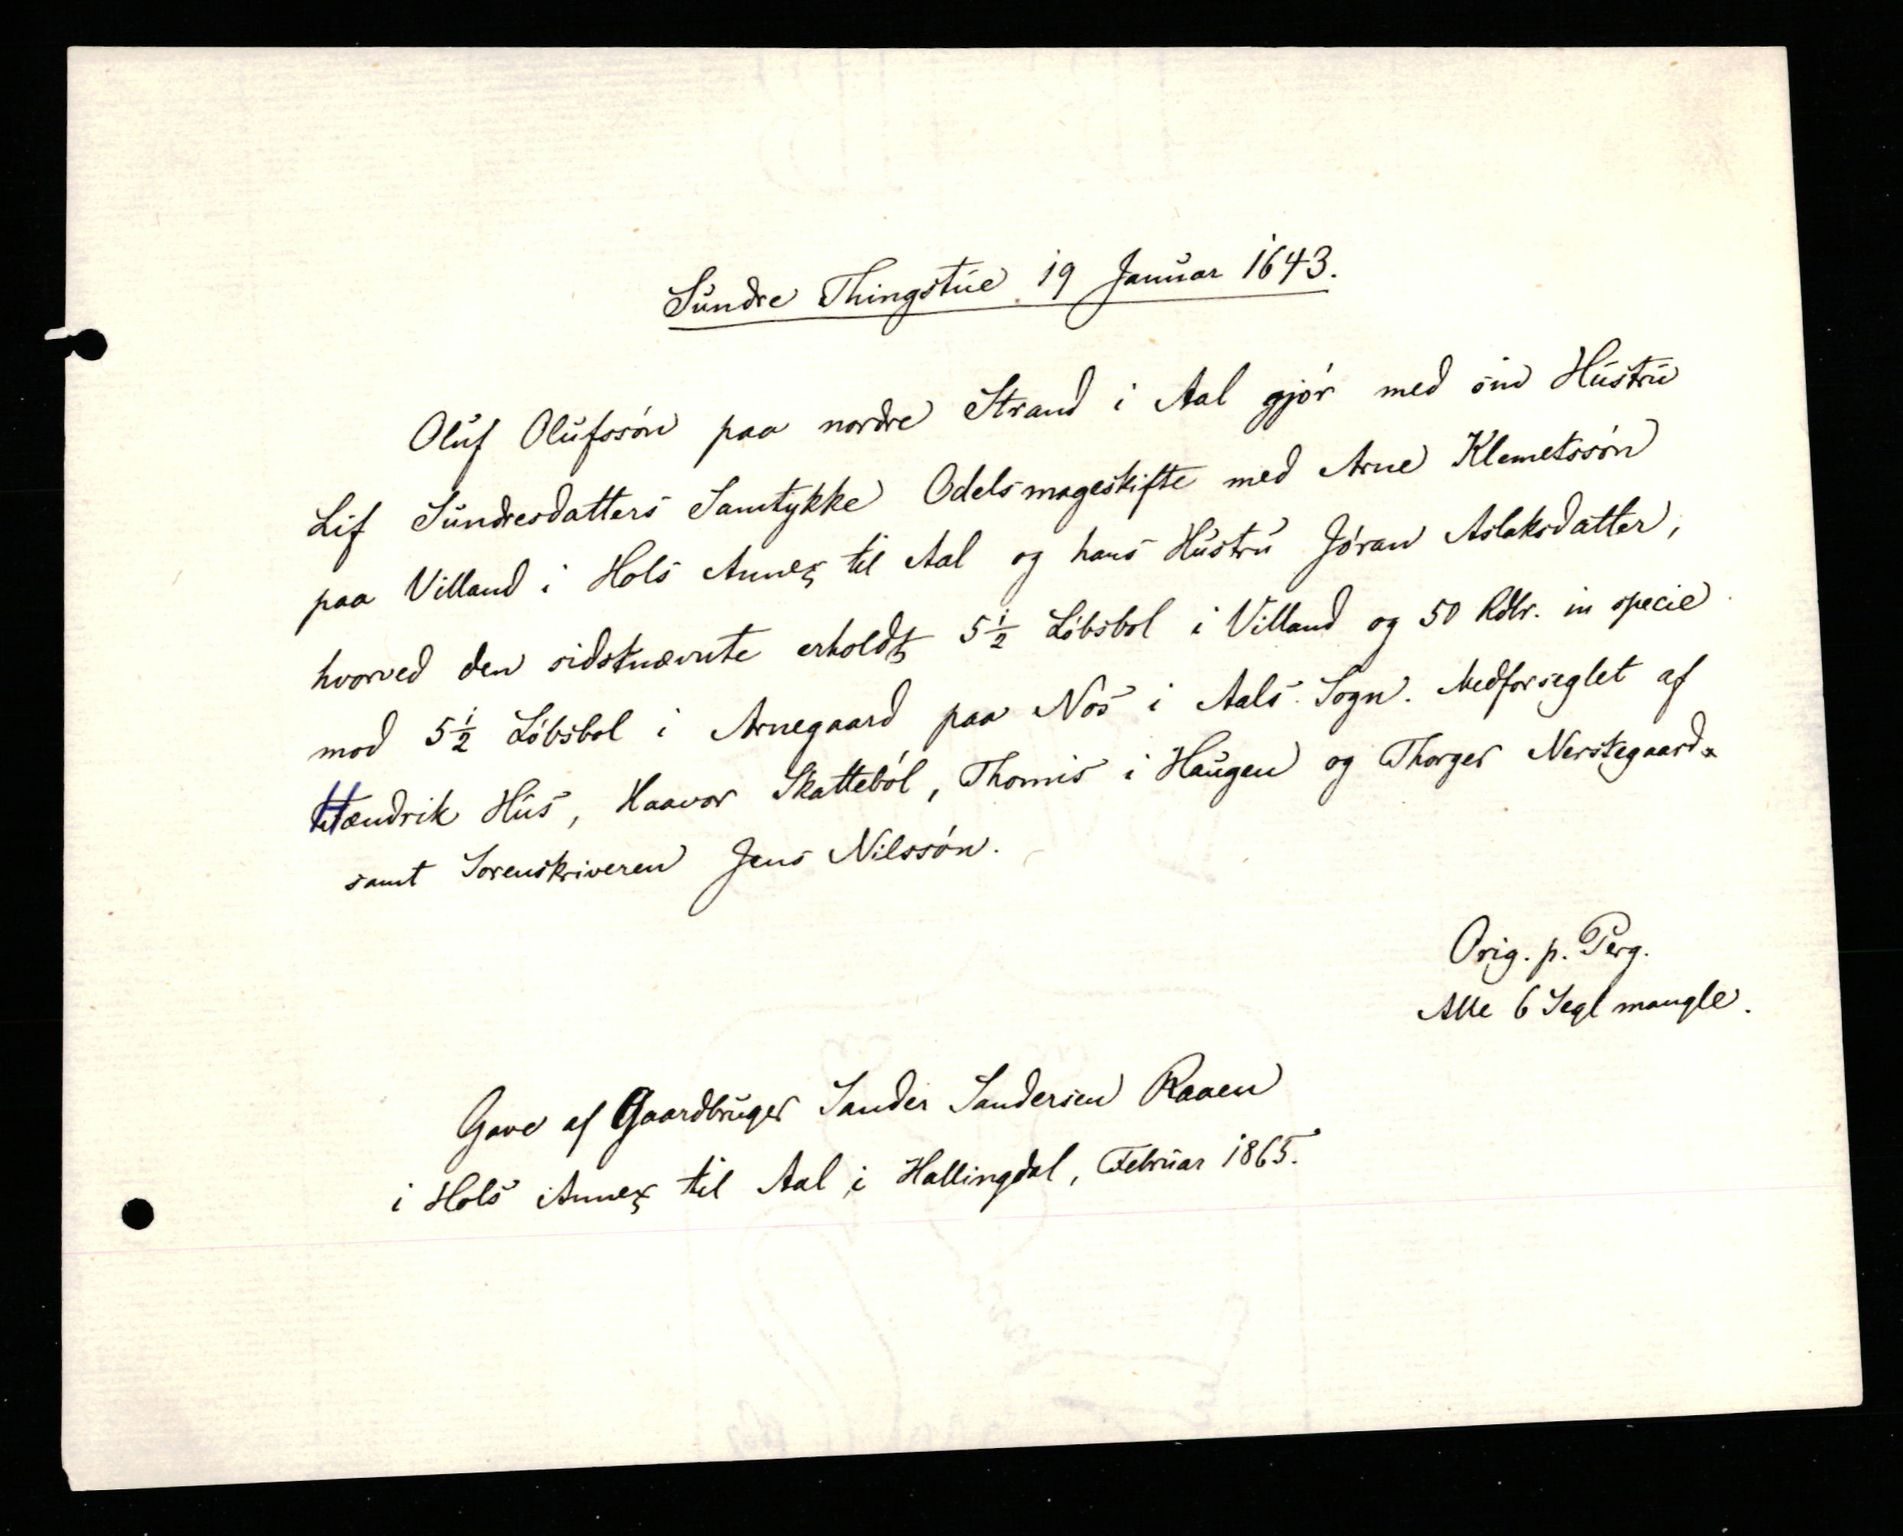 Sundre Thingstue 19 Januar 1643.
Oluf Olufssön paa nordre Strand i Aal gjör med sin Hustru
Lif Sundresdatters Samtykke Odelsmageskifte med Arne Klemetssön
paa Villand i Hols Annex til Aal og hans Hustru Jöran Aslaksdatter,
hvorved den sidstnævnte erholdt 5½ Löbsbol i Villand og 50 Rdlr. in specie
mod 5½ Löbsbol i Arnegaard paa Nos i Aals Sogn. Medforseglet af
Hændrik Hus, Haavor Skatteböl, Thomis i Haugen og Thorger Nerstegaard
samt Sorenskriveren Jens Nilssön.
Orig. p. Perg.
Alle 6 Segl mangle.
Gave af Gaardbruger Sander Sandersen Raaen
i Hols Annex til Aal i Hallingdal, Februar 1865.